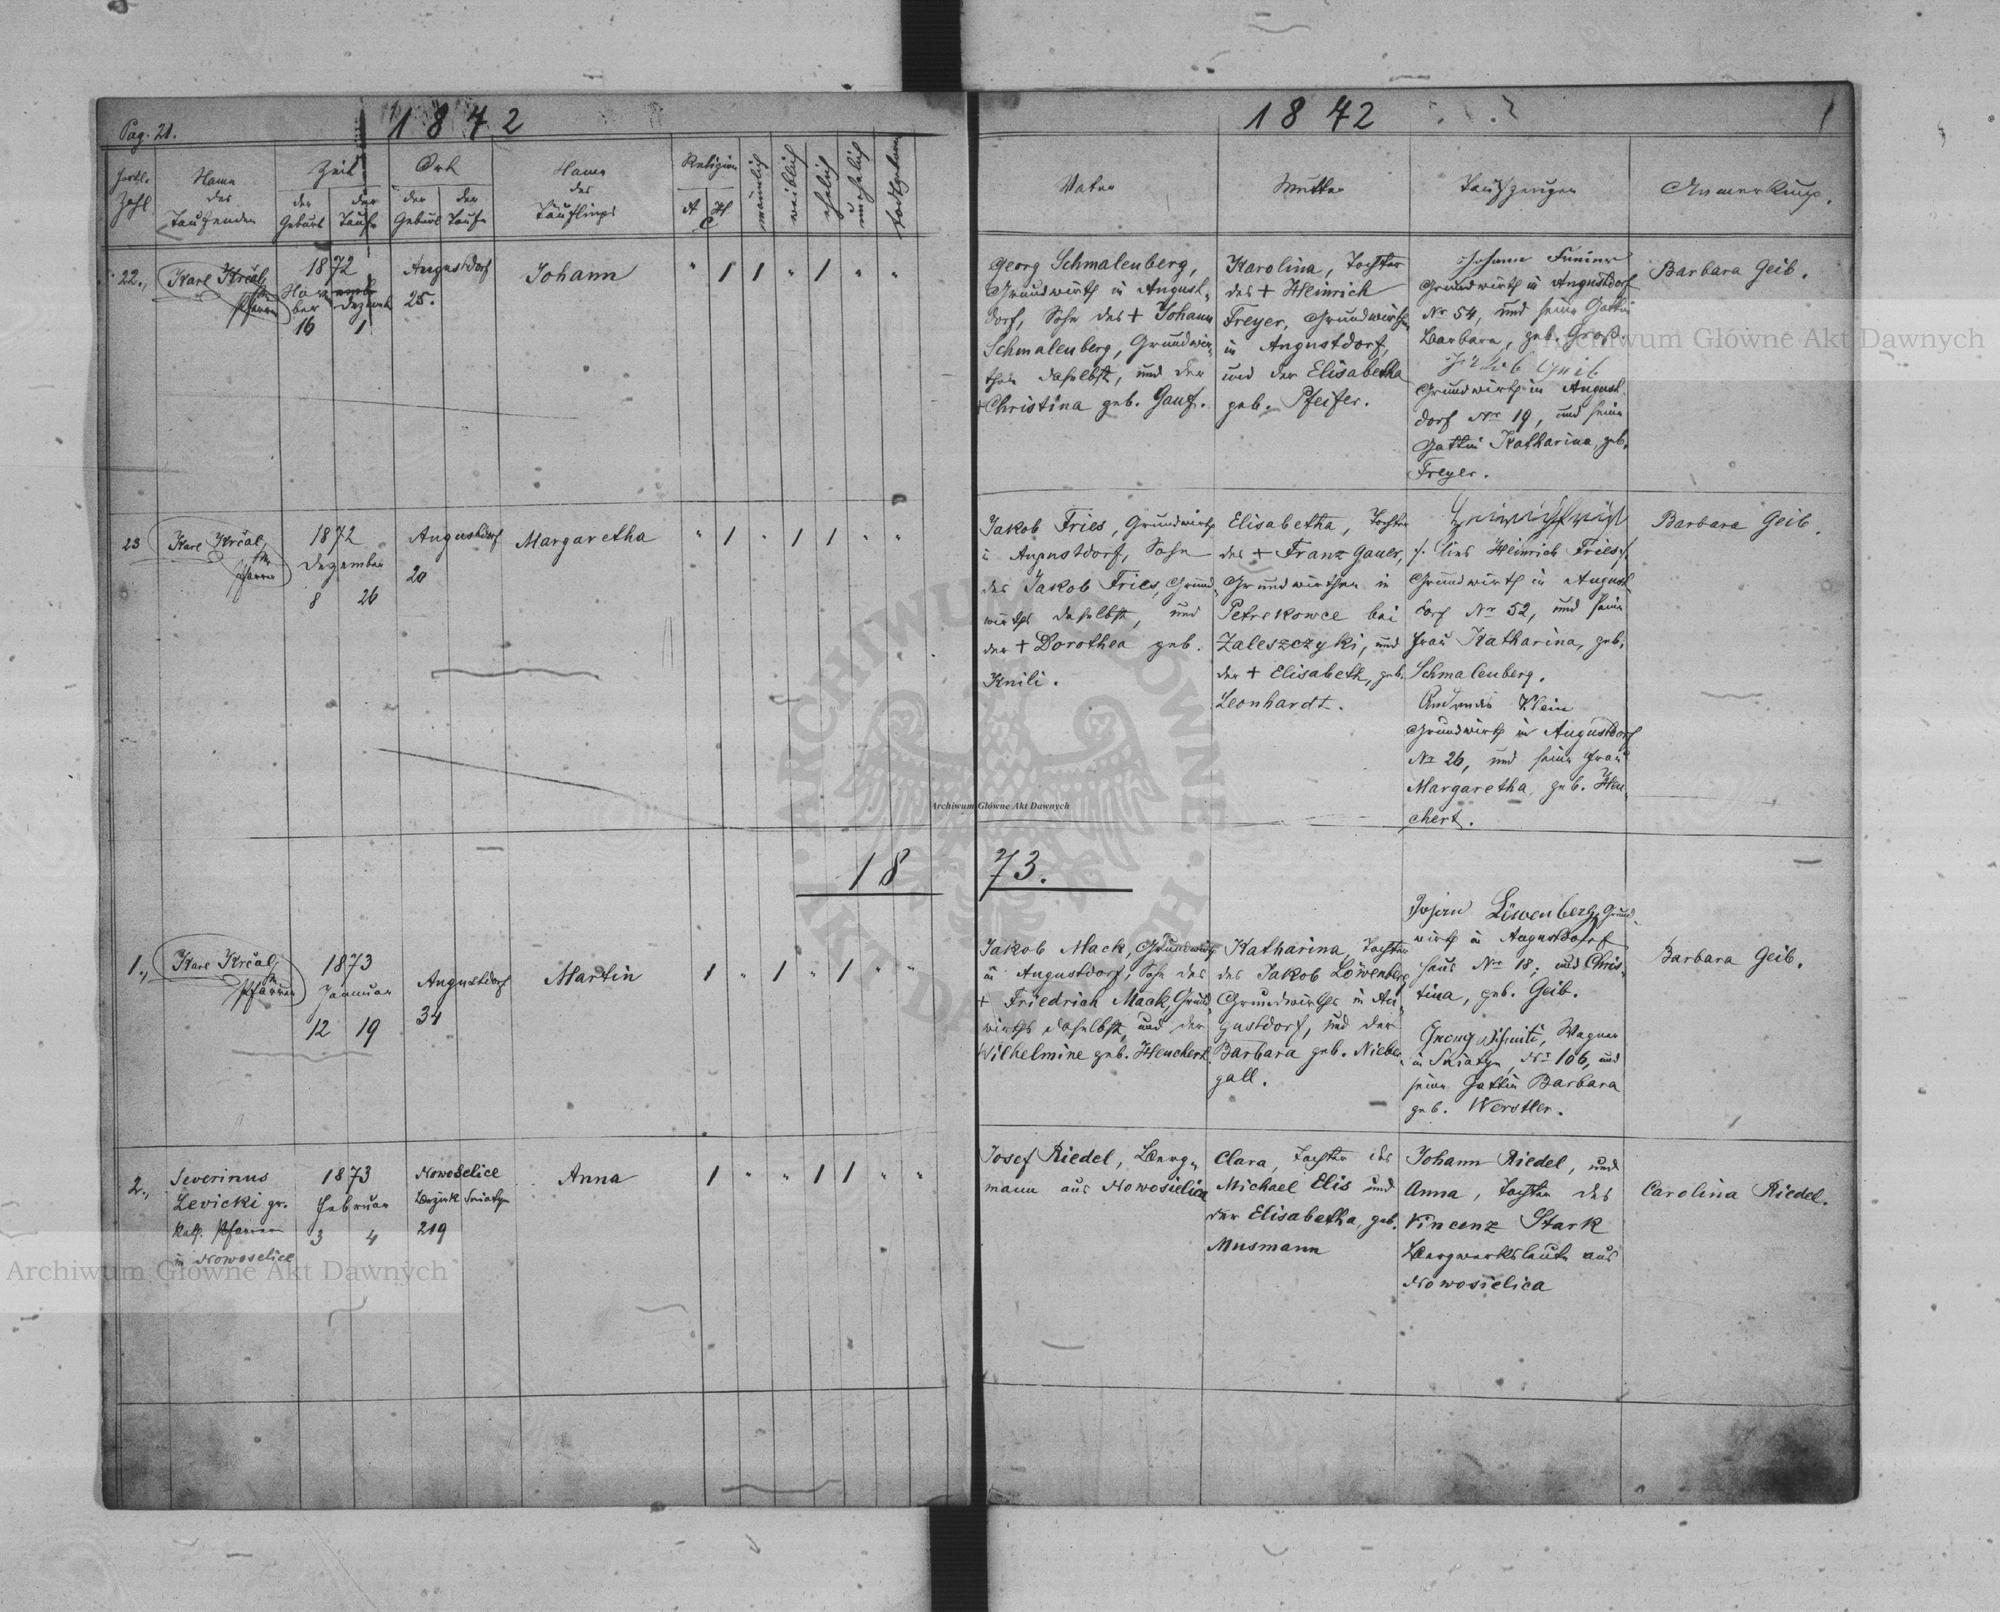 Pag. 21.
1872
1872
Fortl. Zahl
Name des Taufenden
Zeit
der Geburt
der Taufe
Ort
der Geburt
der Taufe
Name des Täuflings
Religion
A
H
C
männlich
weiblich
ehelich
unehelich
todtgeboren
Vater
Mutter
Taufzeugen
Anmerkung.
22.,
Karl Krčal,
Pfarrer
1872
November
Dezemb
16 1
Augustdorf
25.
Johann
" / / " / " "
Georg Schmalenberg,
Grundwirth in August-
dorf, Sohn des + Johann
Schmalenberg, Grundwir-
then daselbst, und der
+ Christina geb. Gauf.
Karolina, Tochter
des + Heinrich
Freyer, Grundwirthen
in Augustdorf,
und der Elisabetha
geb. Pfeifer.
Johann
Grundwirth in Augustdorf
Nr 54, und seine Gattin
Barbara, geb. Groß.
Jakob Geib
Grundwirth in August-
dorf Nr 19, und seine
Gattin Katharina, geb.
Freyer.
Barbara Geib.
23
Karl Krčal,
Pfarrer
1872
Dezember
8 26
Augustdorf
20
Margaretha
" / " / / " "
Jakob Fries, Grundwirth
in Augustdorf, Sohn
des Jakob Fries, Grund-
wirths daselbst, und
der + Dorothea geb.
Knili.
Elisabetha, Tochter
des + Franz Gauer,
Grundwirthen in
Petrekowce bei
Zaleszczyki, und
der + Elisabeth, geb.
Leonhardt.
/. lies Heinrich Fries ./
Grundwirth in August-
dorf Nr 52, und seine
Frau Katharina, geb.
Schmalenberg.
Andreas Klein
Grundwirth in Augustdorf
Nr 26, und seine Frau
Margaretha, geb. Heu-
chert.
Barbara Geib.
1873.
1.,
Karl Krčal,
Pfarrer
1873
Januar
12 19
Augustdorf
34
Martin
/ " / " / " "
Jakob Mack, Grundwirth
in Augustdorf, Sohn des
+ Friedrich Maak, Grund-
wirths daselbst, und der
Wilhelmine geb. Heuchert.
Katharina, Tochter
des Jakob Löwenberg,
Grundwirths in Au-
gustdorf, und der
Barbara geb. Nieber-
gall.
Johann Löwenberg, Grund-
wirth in Augustdorf
Haus Nro 18, und Chris-
tina, geb. Geib.
Georg Wagner
in Sniatyn, Nr 106, und
seine Gattin Barbara
geb. Werstler.
Barbara Geib.
2.,
Severinus
Levicki gr.
kath. Pfarrer
in Nowoselice
1873
Februar
3 4
Nowoselice
Bezirk Sniatyn
219
Anna
/ " " / / " "
Josef Riedel, Berg-
mann aus Nowosielica
Clara, Tochter des
Michael Elis und
der Elisabetha, geb.
Musmann
Johann Riedel, und
Anna, Tochter des
Vincenz Stark
Bergwerksleute aus
Nowosielica
Carolina Riedel.
Archiwum Główne Akt Dawnych
Archiwum Główne Akt Dawnych
Archiwum Główne Akt Dawnych
ARCHIWUM GŁÓWNE AKT DAWNYCH